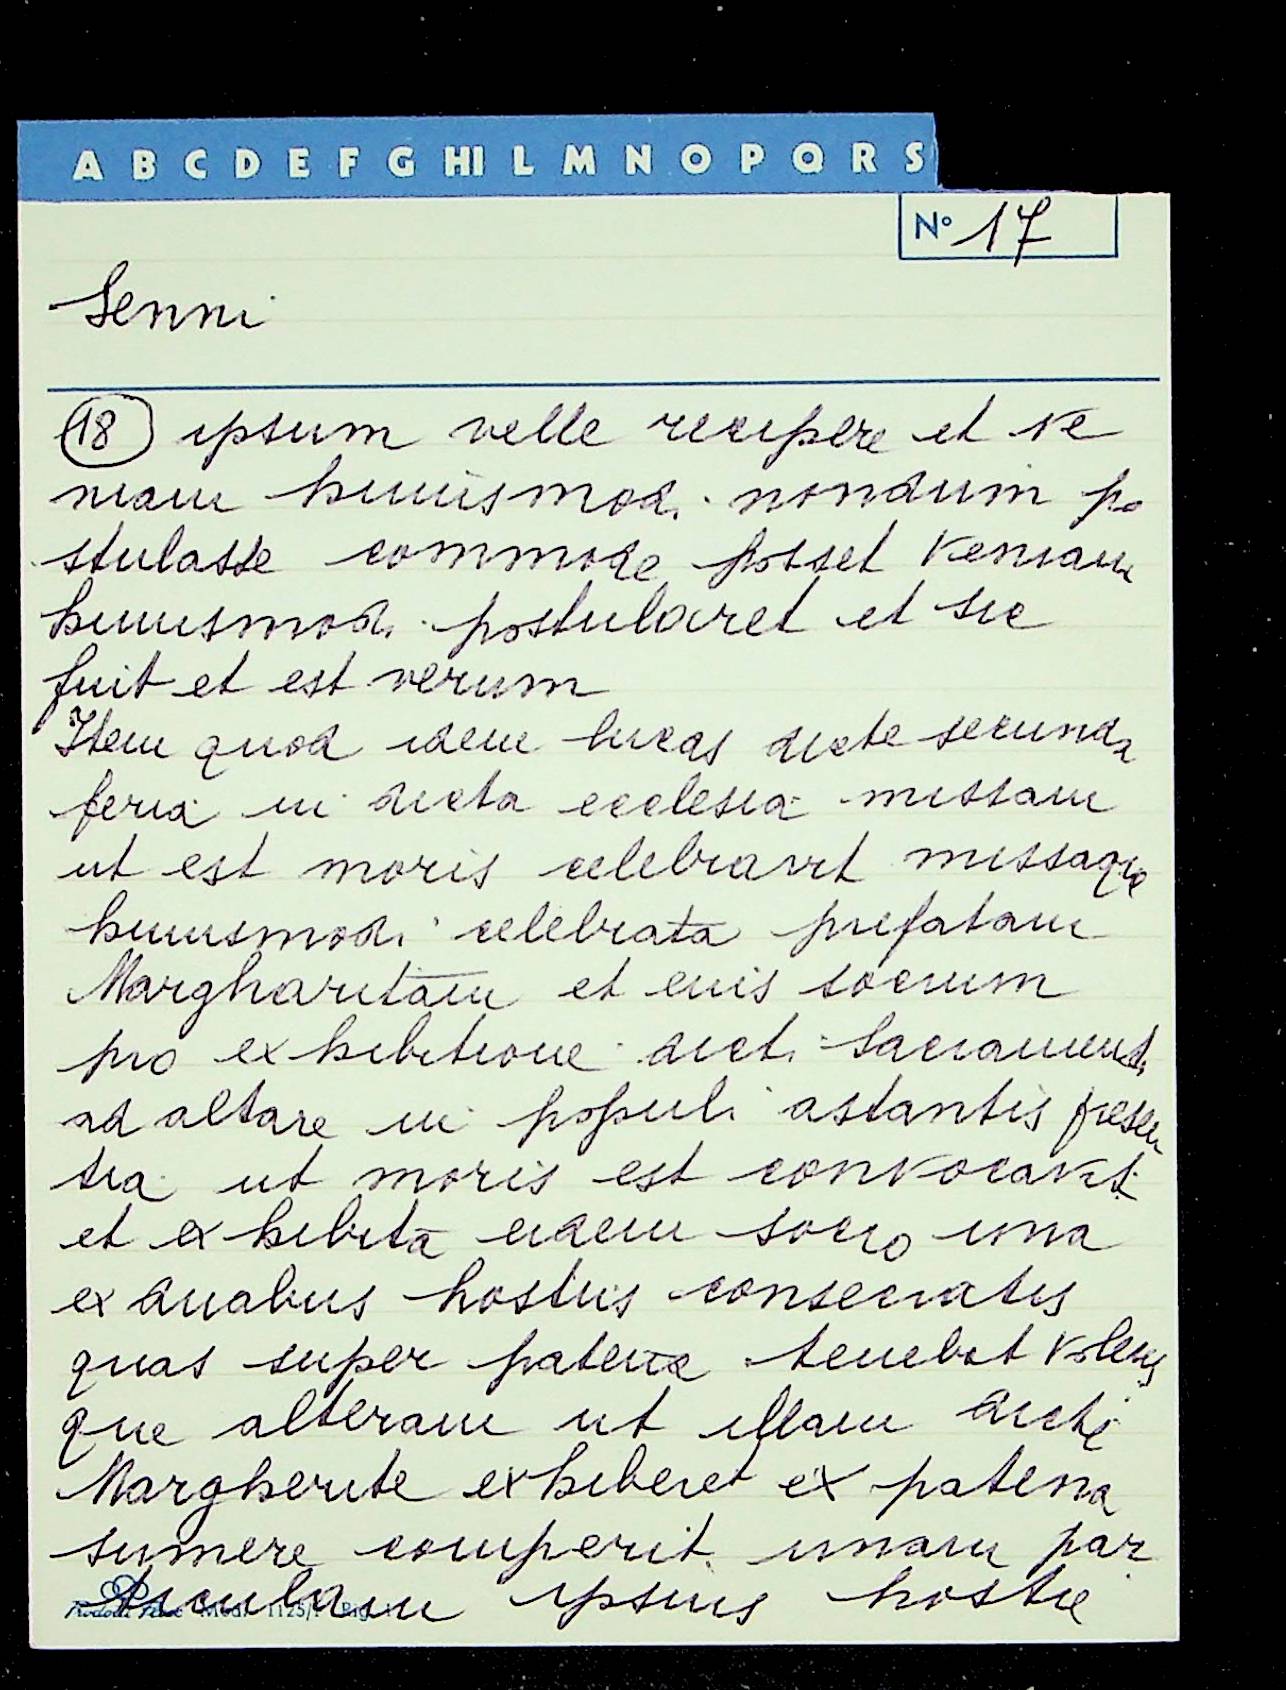 A B C D E F G HI L M N O P Q R S
N° 17
Senni
18 ipsum velle recipere et ve
niam huiusmodi nondum po
stulasse commode posset veniam
huiusmodi postularet et sic
fuit et est verum
Item quod idem lucas dicte secunda
feria in dicta ecclesia missam
ut est moris celebravit missaque
huiusmodi celebrata prefatam
Margharitam et eius socrum
pro exhibitione dicti Sacramenti
ad altare in populi astantis presen
tia ut moris est convocavit
et exhibita eidem socro una
ex duabus hostiis consecratis
quas super patena tenebat volens
que alteram ut illam dicte
Margherite exhiberet ex patena
sumere comperit unam par
ticulam ipsius hostie